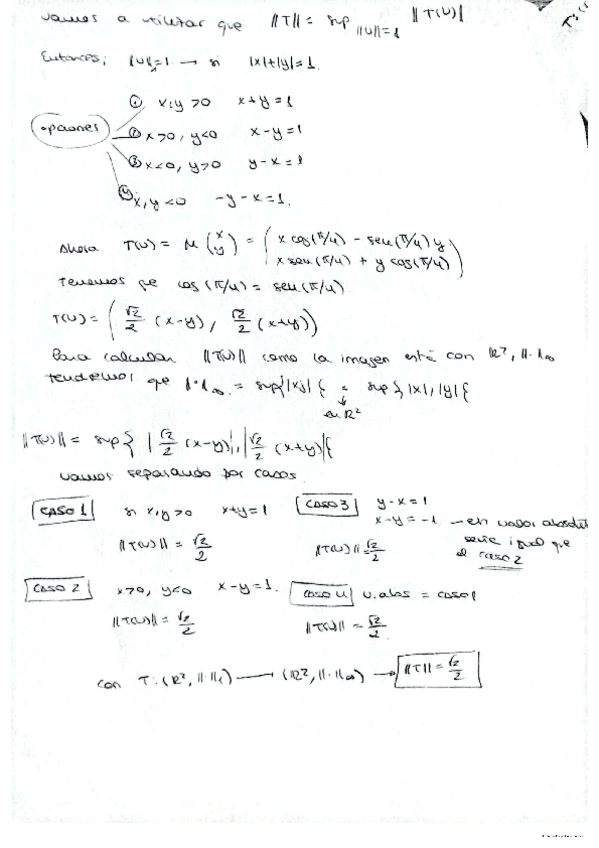 vamos a utilizar que ||T|| = sup ||U||=1 ||T(U)||
Entonces; ||U||₁=1 → si |x|+|y|=1.
① x,y >0 x+y=1
opciones ② x>0, y<0 x-y=1
③ x<0, y>0 y-x=1
④ x,y<0 -y-x=1.
Ahora T(U) = M (x y) = ( x cos(π/4) - sen(π/4) y
x sen(π/4) + y cos(π/4) )
tenemos que cos(π/4) = sen(π/4)
T(U) = ( √2/2 (x-y), √2/2 (x+y))
Para calcular ||T(U)|| como la imagen está con R², ||·||∞
tendremos que ||·||∞ = sup{|xj|} = sup{|x|, |y|}
en R²
||T(U)|| = sup{ |√2/2 (x-y)|, |√2/2 (x+y)| }
vamos separando por casos.
CASO 1 si x,y>0 x+y=1
||T(U)|| = √2/2
CASO 3 y-x=1
x-y=-1 → en valor absoluto
sería igual que
el caso 2
||T(U)|| = √2/2
CASO 2 x>0, y<0 x-y=1.
||T(U)|| = √2/2
CASO 4 v.abs = caso 1
||T(U)|| = √2/2
con T: (R², ||·||₁) → (R², ||·||∞) → ||T|| = √2/2